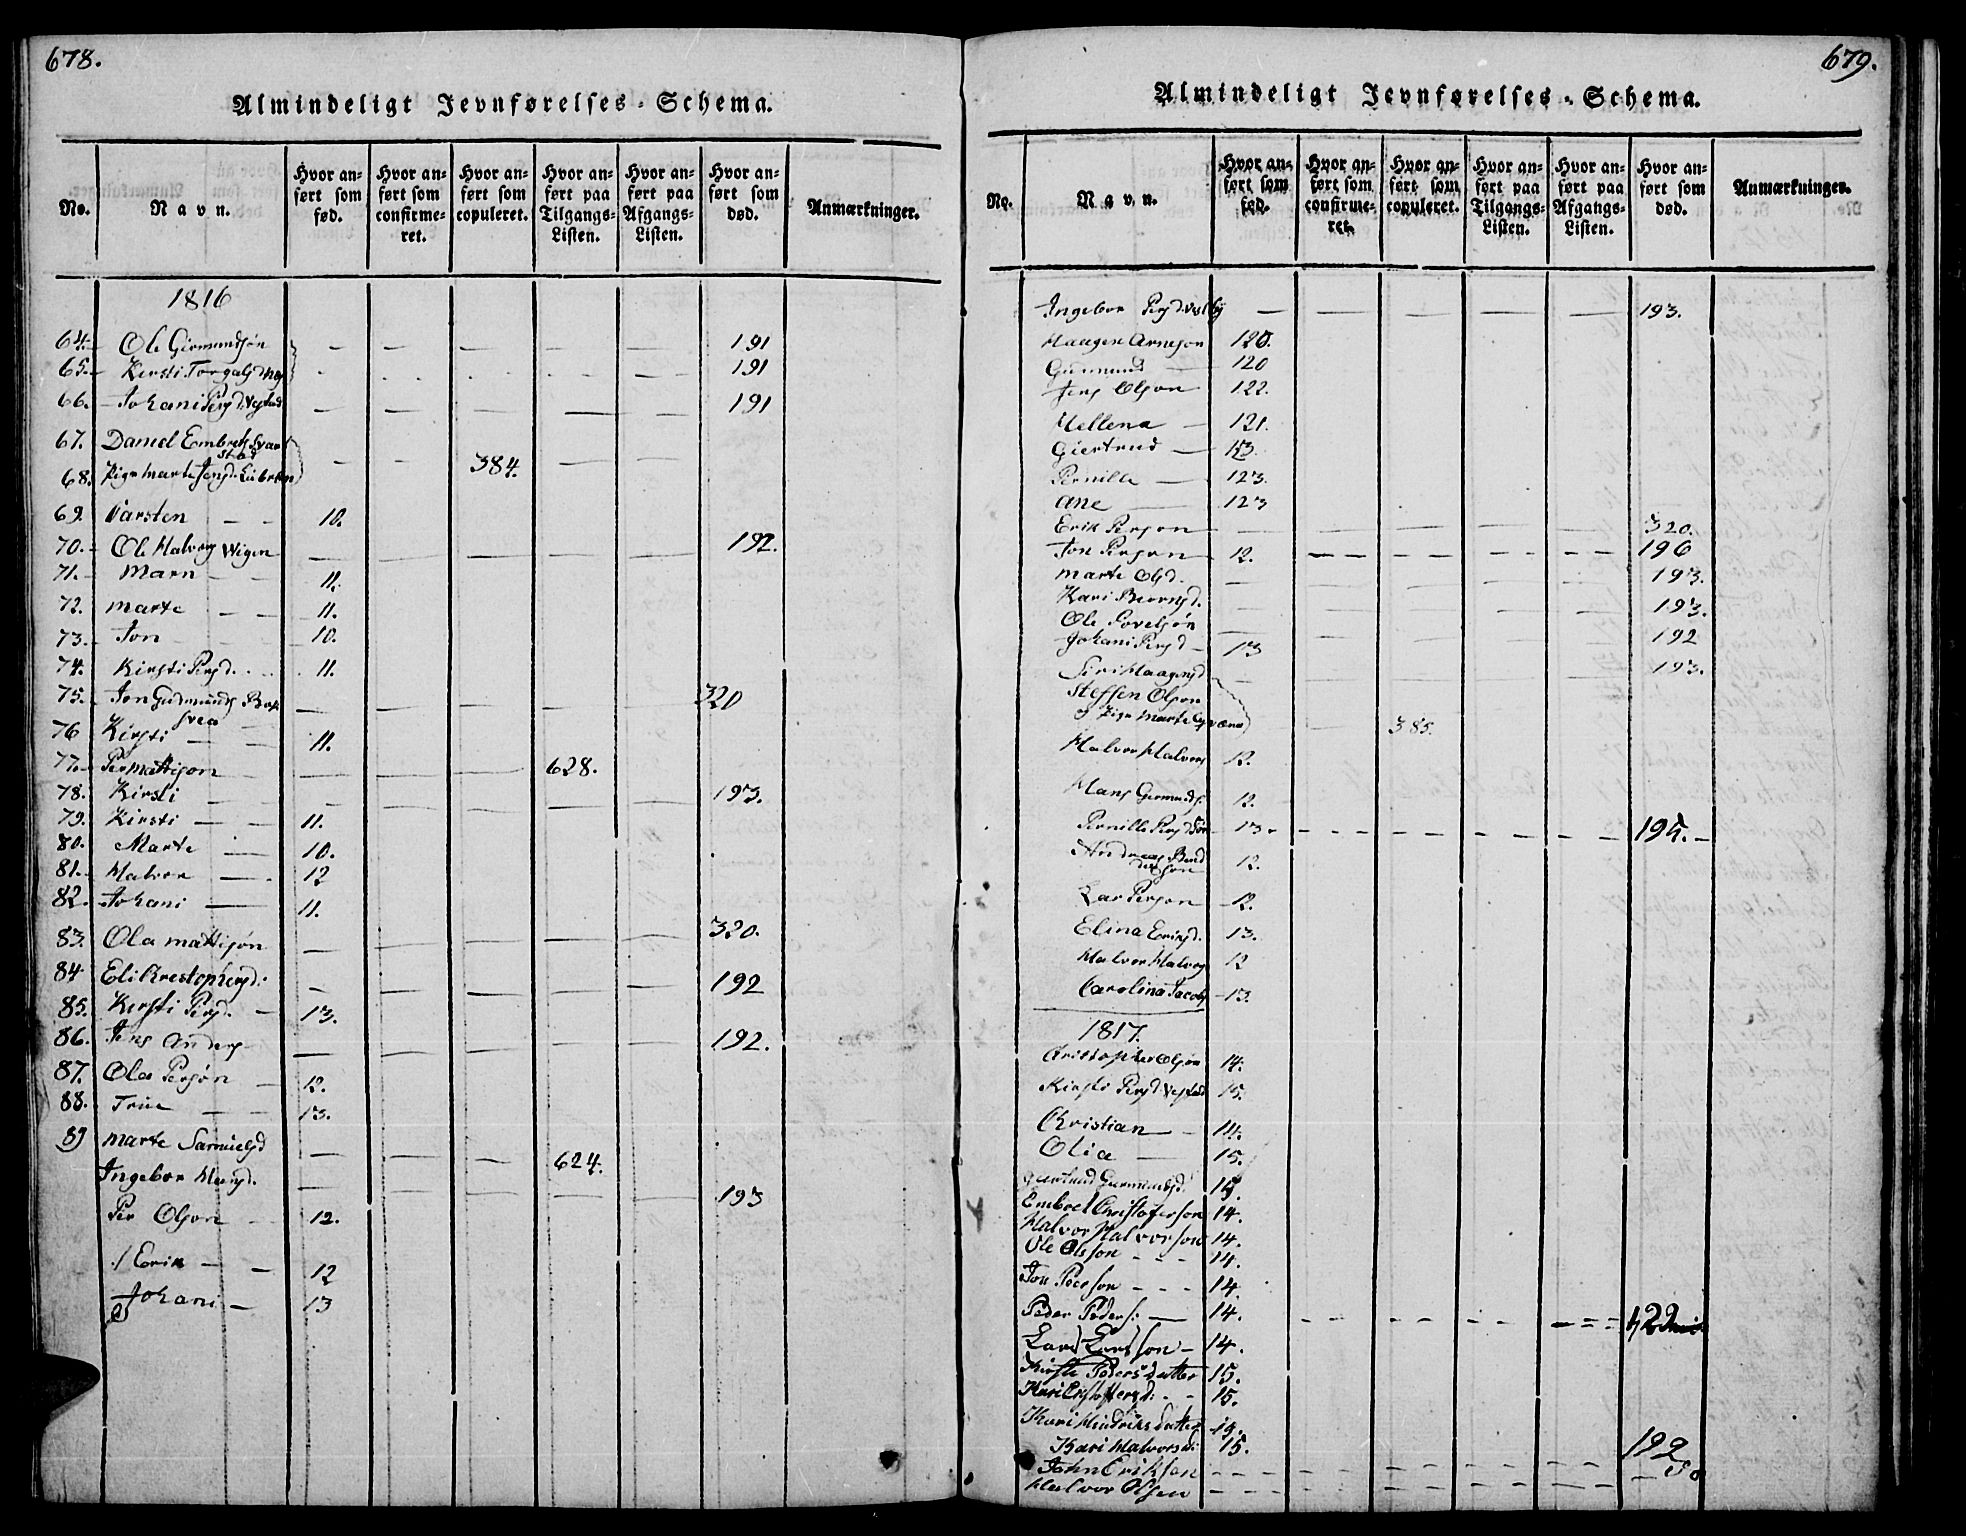 678.
Almindeligt Jevnførelses-Schema.
No. | Navn. | Hvor anført som fød. | Hvor anført som confirmeret. | Hvor anført som copuleret. | Hvor anført paa Tilgangs-Listen. | Hvor anført paa Afgangs-Listen. | Hvor anført som død. | Anmærkninger.
1816
64. Ole Girmundsøn — — — — — 191
65. Kirsti 191
66. Johani Persd. — — — — — 191
67. Daniel Embrets
68. Pige Marte Jensd. — — 384. — —
69. Karsten — — 10.
70. Ole Halvors Wigen — — — — — 192.
71. Marn — — 11.
72. Marte — — 11.
73. Jon — 10.
74. Kirsti Persd. 11.
75. Jon Gudmunds — — — — — 320
76 Kirsti — — 11.
77. Per Mattisøn — — — — 628.
78. Kirsti — — — — — — 193.
79. Kirsti — — 11.
80. Marte — 10.
81. Halvor — 12
82. Johani — 11.
83. Ola Mattisøn — — — — — 320.
84 Eli Krestophersd. — — — — — 192
85. Kirsti Persd. — 13.
86. Jens Anders — — — — — 192.
87. Ola Persøn — 12.
88. Trine — — 13.
89 Marte Samuelsd — — — 624.
Ingebor — — — — — 193
Per Olson — 12.
Erik — — 12
Johani — 13
679.
Almindeligt Jevnførelses-Schema.
No. | Navn. | Hvor anført som fød. | Hvor anført som confirmeret. | Hvor anført som copuleret. | Hvor anført paa Tilgangs-Listen. | Hvor anført paa Afgangs-Listen. | Hvor anført som død. | Anmærkninger.
Ingebor Persd. — — — — — 193.
Haagen Arneson 120.
Gunmund — 120
Jens Olson 122.
Hellena — 121.
Giertrud —
Pernille — 123.
Ane — 123
Erik Person — — — — — 320.
Jon Person 12. — — — — 196
Marte Olsd. — — — — — 193.
Kari — — — — — 193.
Ole — — — — — 192
Johani Persd — 13
Siri Haagensd — — — — — 193.
Steffen Olson
og Pige Marte — — 385.
Halvor Halvors 12.
Hans Girmunds. 12.
Pernille Persd 13. — — — — 195.
Andreas 12.
Lar Person 12.
Elina Eriksd. 13.
Halvor Halvors 12
Carolina Jacobs 13.
1817.
Cristopher Olsøn 14.
Kirsti Persd 15.
Christian — 14.
Olia — 15.
Embret Christoferson 14.
Halvor Halvorson 14.
Ole Olsson — — — 14.
Jon Person — — — 14.
Peder Peders: — 14.
Lars Larsson — 14.
Kirsti Pedersdatter 15.
Kari Cristoffersd: — 15.
Kari Hindriksdatter
Kari Halvorsd: 15.
John Erikson — — — — — —
Halvor Olsen — — — — — —